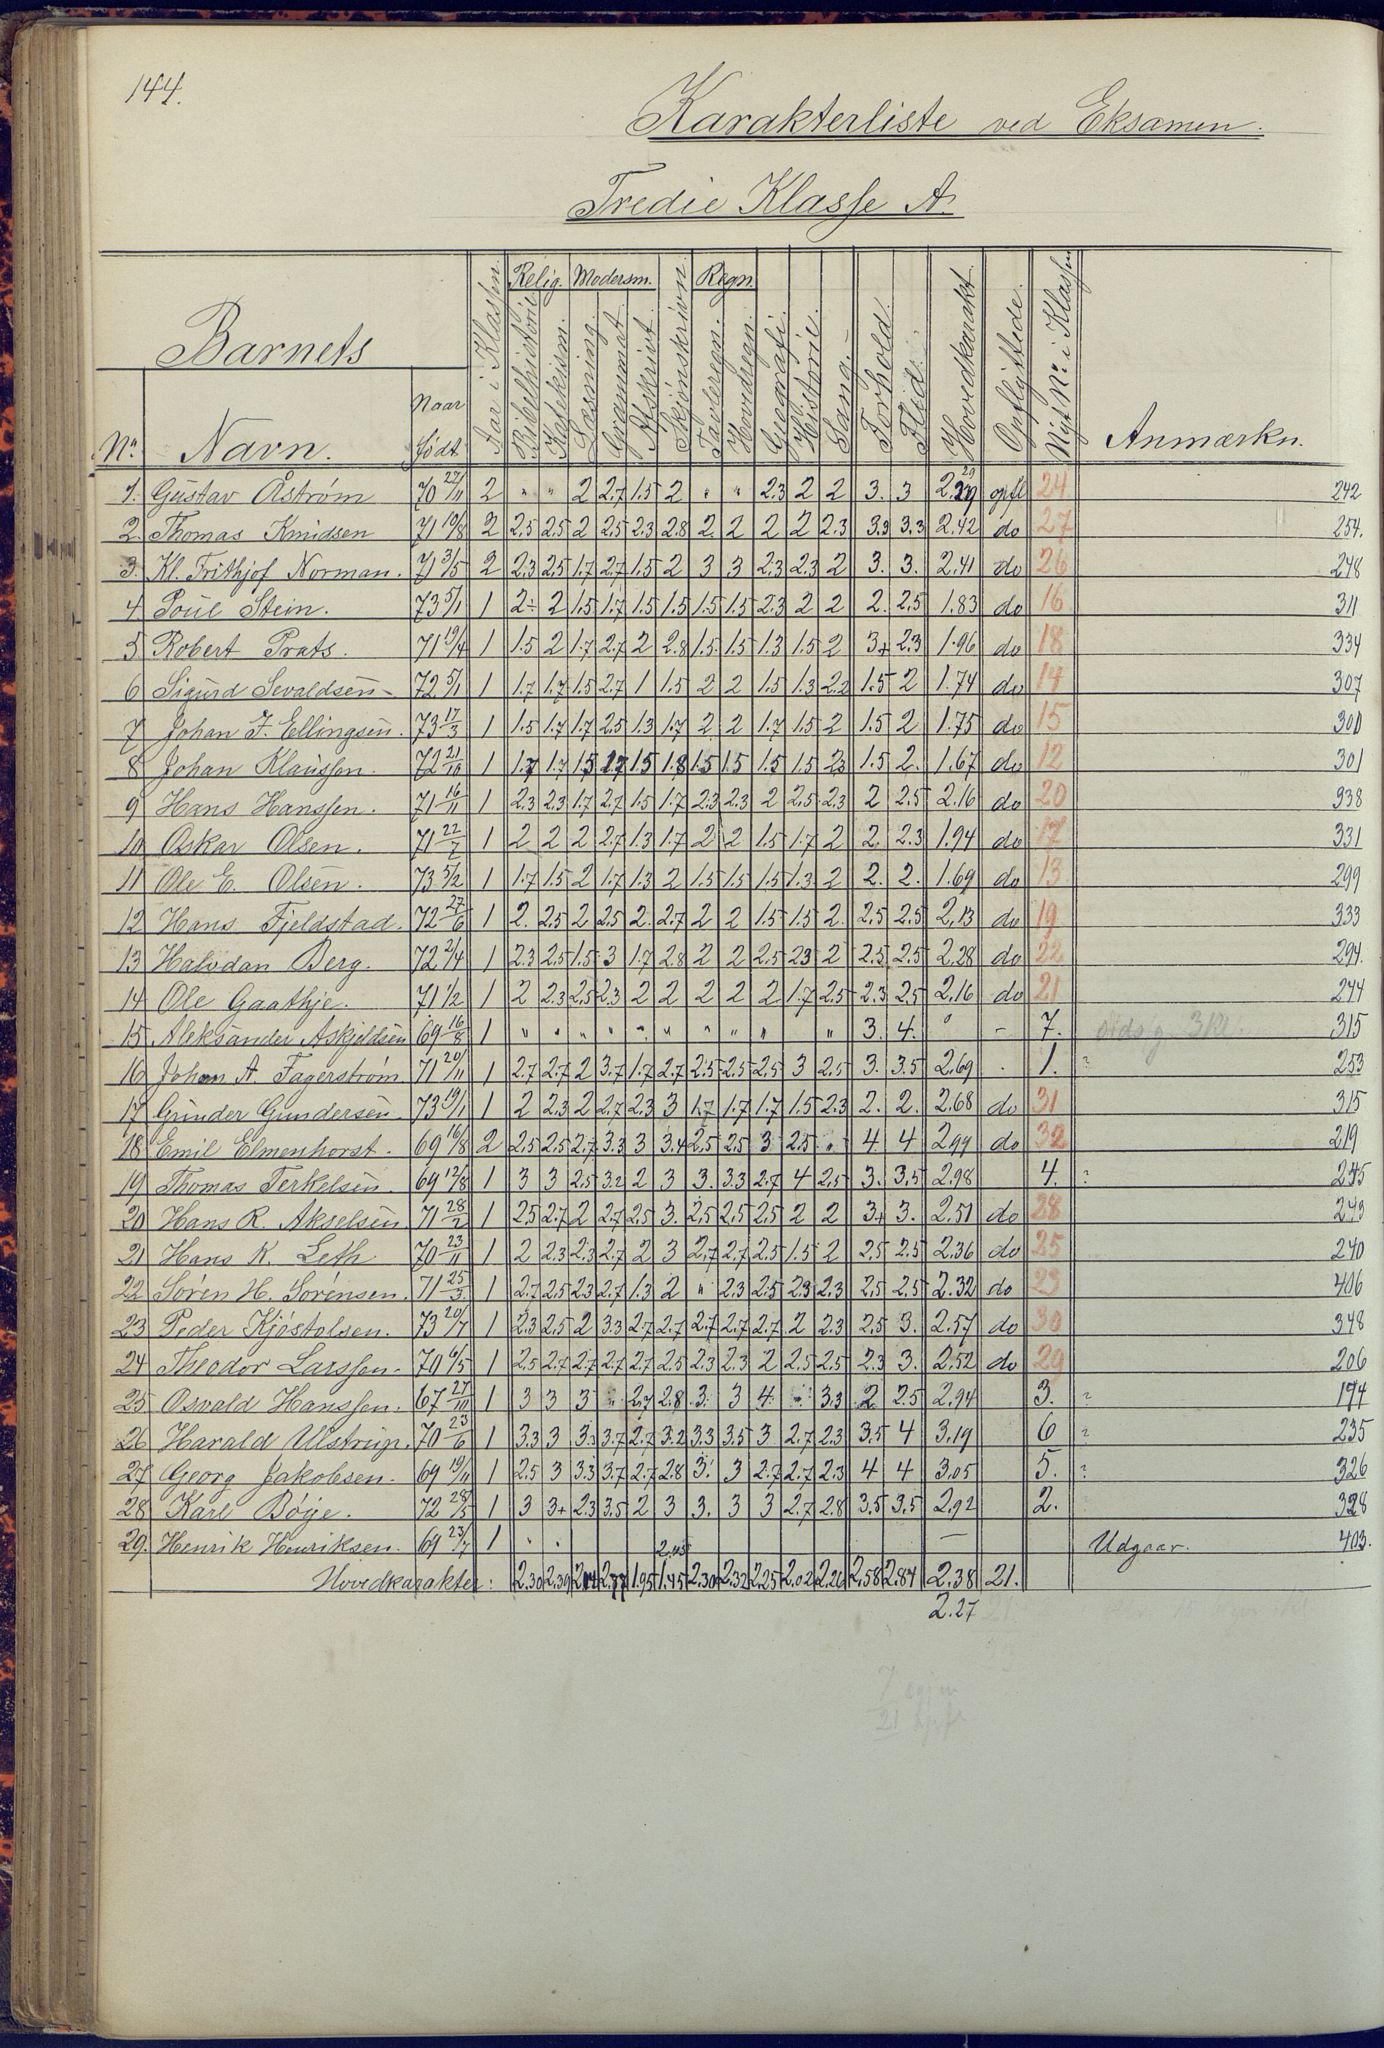 144.
Karakterliste ved Eksamen.
Tredie Klasse A.
Barnets
No. Navn. Naar født. Aar i Klassen. Relig. Bibelhistorie Katekism. Modersm. Læsning. Grammat. Afskrivt. Skjønskrivn. Regn. Tavleregn. Hovedregn. Geografi. Historie. Sang. Forhold. Flid. Hovedkarakt. Opflyttede. Nyt No. i Klassen Anmærkn.
1. Gustav Åstrøm 70 22/11 2 " " 2 2.7 1.5 2 " " 2.3 2 2 3. 3 2.29 opfl 24 242
2. Thomas Knudsen 71 19/8 2 2.5 2.5 2 2.5 2.3 2.8 2. 2 2 2 2.3 3.3 3.3 2.42 do 27 254.
3. Kl. Frithjof Norman. 71 3/5 2 2.3 2.5 1.7 2.7 1.5 2 3 3 2.3 2.3 2 3. 3. 2.41 do 26 248
4 Poul Stein. 73 5/1 1 2÷ 2 1.5 1.7 1.5 1.5 1.5 1.5 2.3 2 2 2. 2.5 1.83 do 16 311
5 Robert Prats. 71 19/4 1 1.5 2 1.7 2.7 2 2.8 1.5 1.5 1.3 1.5 2 3+ 2.3 1.96 do 18 334
6 Sigurd Sevaldsen 72 5/1 1 1.7 1.7 1.5 2.7 1 1.5 2 2 1.5 1.3 2.2 1.5 2 1.74 do 14 307
7 Johan F. Ellingsen. 73 17/3 1 1.5 1.7 1.7 2.5 1.3 1.7 2 2 1.7 1.5 2 1.5 2 1.75 do 15 300
8 Johan Klaussen. 72 21/10 1 1.7 1.7 1.5 2.7 1.5 1.8 1.5 1.5 1.5 1.5 2.3 1.5 2. 1.67 do 12 301
9 Hans Hanssen. 71 16/11 1 2.3 2.3 1.7 2.7 1.5 1.7 2.3 2.3 2 2.5 2.3 2 2.5 2.16 do 20 338
10 Oskar Olsen. 71 22/7 1 2 2 2 2.7 1.3 1.7 2 2 1.5 1.7 2 2. 2.3 1.94 do 17 331
11 Ole E. Olsen. 73 5/2 1 1.7 1.5 2 1.7 1.3 2 1.5 1.5 1.5 1.3 2 2. 2. 1.69 do 13 299
12 Hans Fjeldstad. 72 27/6 1 2. 2.5 2 2.5 2. 2.7 2 2 1.5 1.5 2. 2.5 2.5 2.13 do 19 333
13 Halvdan Berg. 72 2/4 1 2.3 2.5 1.5 3 1.7 2.8 2 2 2.5 2.3 2 2.5 2.5 2.28 do 22 294.
14 Ole Gaathje. 71 1/2 1 2 2.3 2.5 2.3 2 2 2 2 2 1.7 2.5 2.3 2.5 2.16 do 21 244
15 Aleksander Askjeldsen 69 16/8 1 " " " " " " " " " " 3. 4. " - 7. 315
16 Johan A. Fagerstrøm 71 20/11 1 2.7 2.7 2 3.7 1.7 2.7 2.5 2.5 2.5 3 2.5 3. 3.5 2.69 . 1. 253
17 Gunder Gundersen. 73 19/1 1 2 2.3 2 2.7 2.3 3 1.7 1.7 1.7 1.5 2.3 2. 2. 2.68 do 31 315
18 Emil Elmenhorst. 69 16/8 2 2.5 2.5 2.7 3.3 3 3.4 2.5 2.5 3 2.5 " 4. 4 2.99 do 32 219
19 Thomas Terkelsen. 69 12/8 1 3 3 2.5 3.2 2 3 3. 3.3 2.7 4 2.5 3. 3.5 2.98 4. 245
20 Hans R. Akselsen. 71 28/2 1 2.5 2.7 2 2.7 2.5 3. 2.5 2.5 2.5 2 2 3+ 3. 2.51 do 28 243
21 Hans K. Leth 70 23/11 1 2 2.3 2.3 2.7 2 3 2.7 2.7 2.5 1.5 2 2.5 2.5 2.36 do 25 240
22 Søren H. Sørensen. 71 25/3 1 2.7 2.5 2.3 2.7 1.3 2 " 2.3 2.5 2.3 2.3 2.5 2.5 2.32 do 23 406
23 Peder Kjøstolsen. 73 20/7 1 2.3 2.5 2 3.3 2.7 2.7 2.7 2.7 2.7 2 2.3 2.5 3. 2.57 do 30 348
24 Theodor Larssen. 70 6/5 1 2.5 2.7 2.7 2.7 2.7 2.5 2.3 2.3 2 2.5 2.5 2.3 3. 2.52 do 29 206
25 Osvald Hanssen. 67 27/10 1 3 3 3 " 2.7 2.8 3. 3 4. " 3.3 2. 2.5 2.94 3. 194
26 Harald Ulstrup. 70 23/6 1 3.3 3 3.3 3.7 2.7 3.2 3.3 3.5 3 2.7 2.3 3.5 4 3.19 6 235
27 Georg Jakobsen. 69 19/11 1 2.5 3 3.3 3.7 2.7 2.8 3. 3 2.7 2.7 2.3 4 4 3.05 5. 326
28 Karl Bøye. 72 28/5 1 3 3+ 2.3 3.5 2 3 3. 3 3 2.7 2.8 3.5 3.5 2.92 2. 328
29. Henrik Henriksen. 69 23/7 1 " " — Udgaar. 403.
2.45
Hovedkarakter: 2.30 2.39 2.14 2.77 1.95 1.45 2.30 2.32 2.25 2.02 2.26 2.58 2.84 2.38 21.
2.27 21
7
21